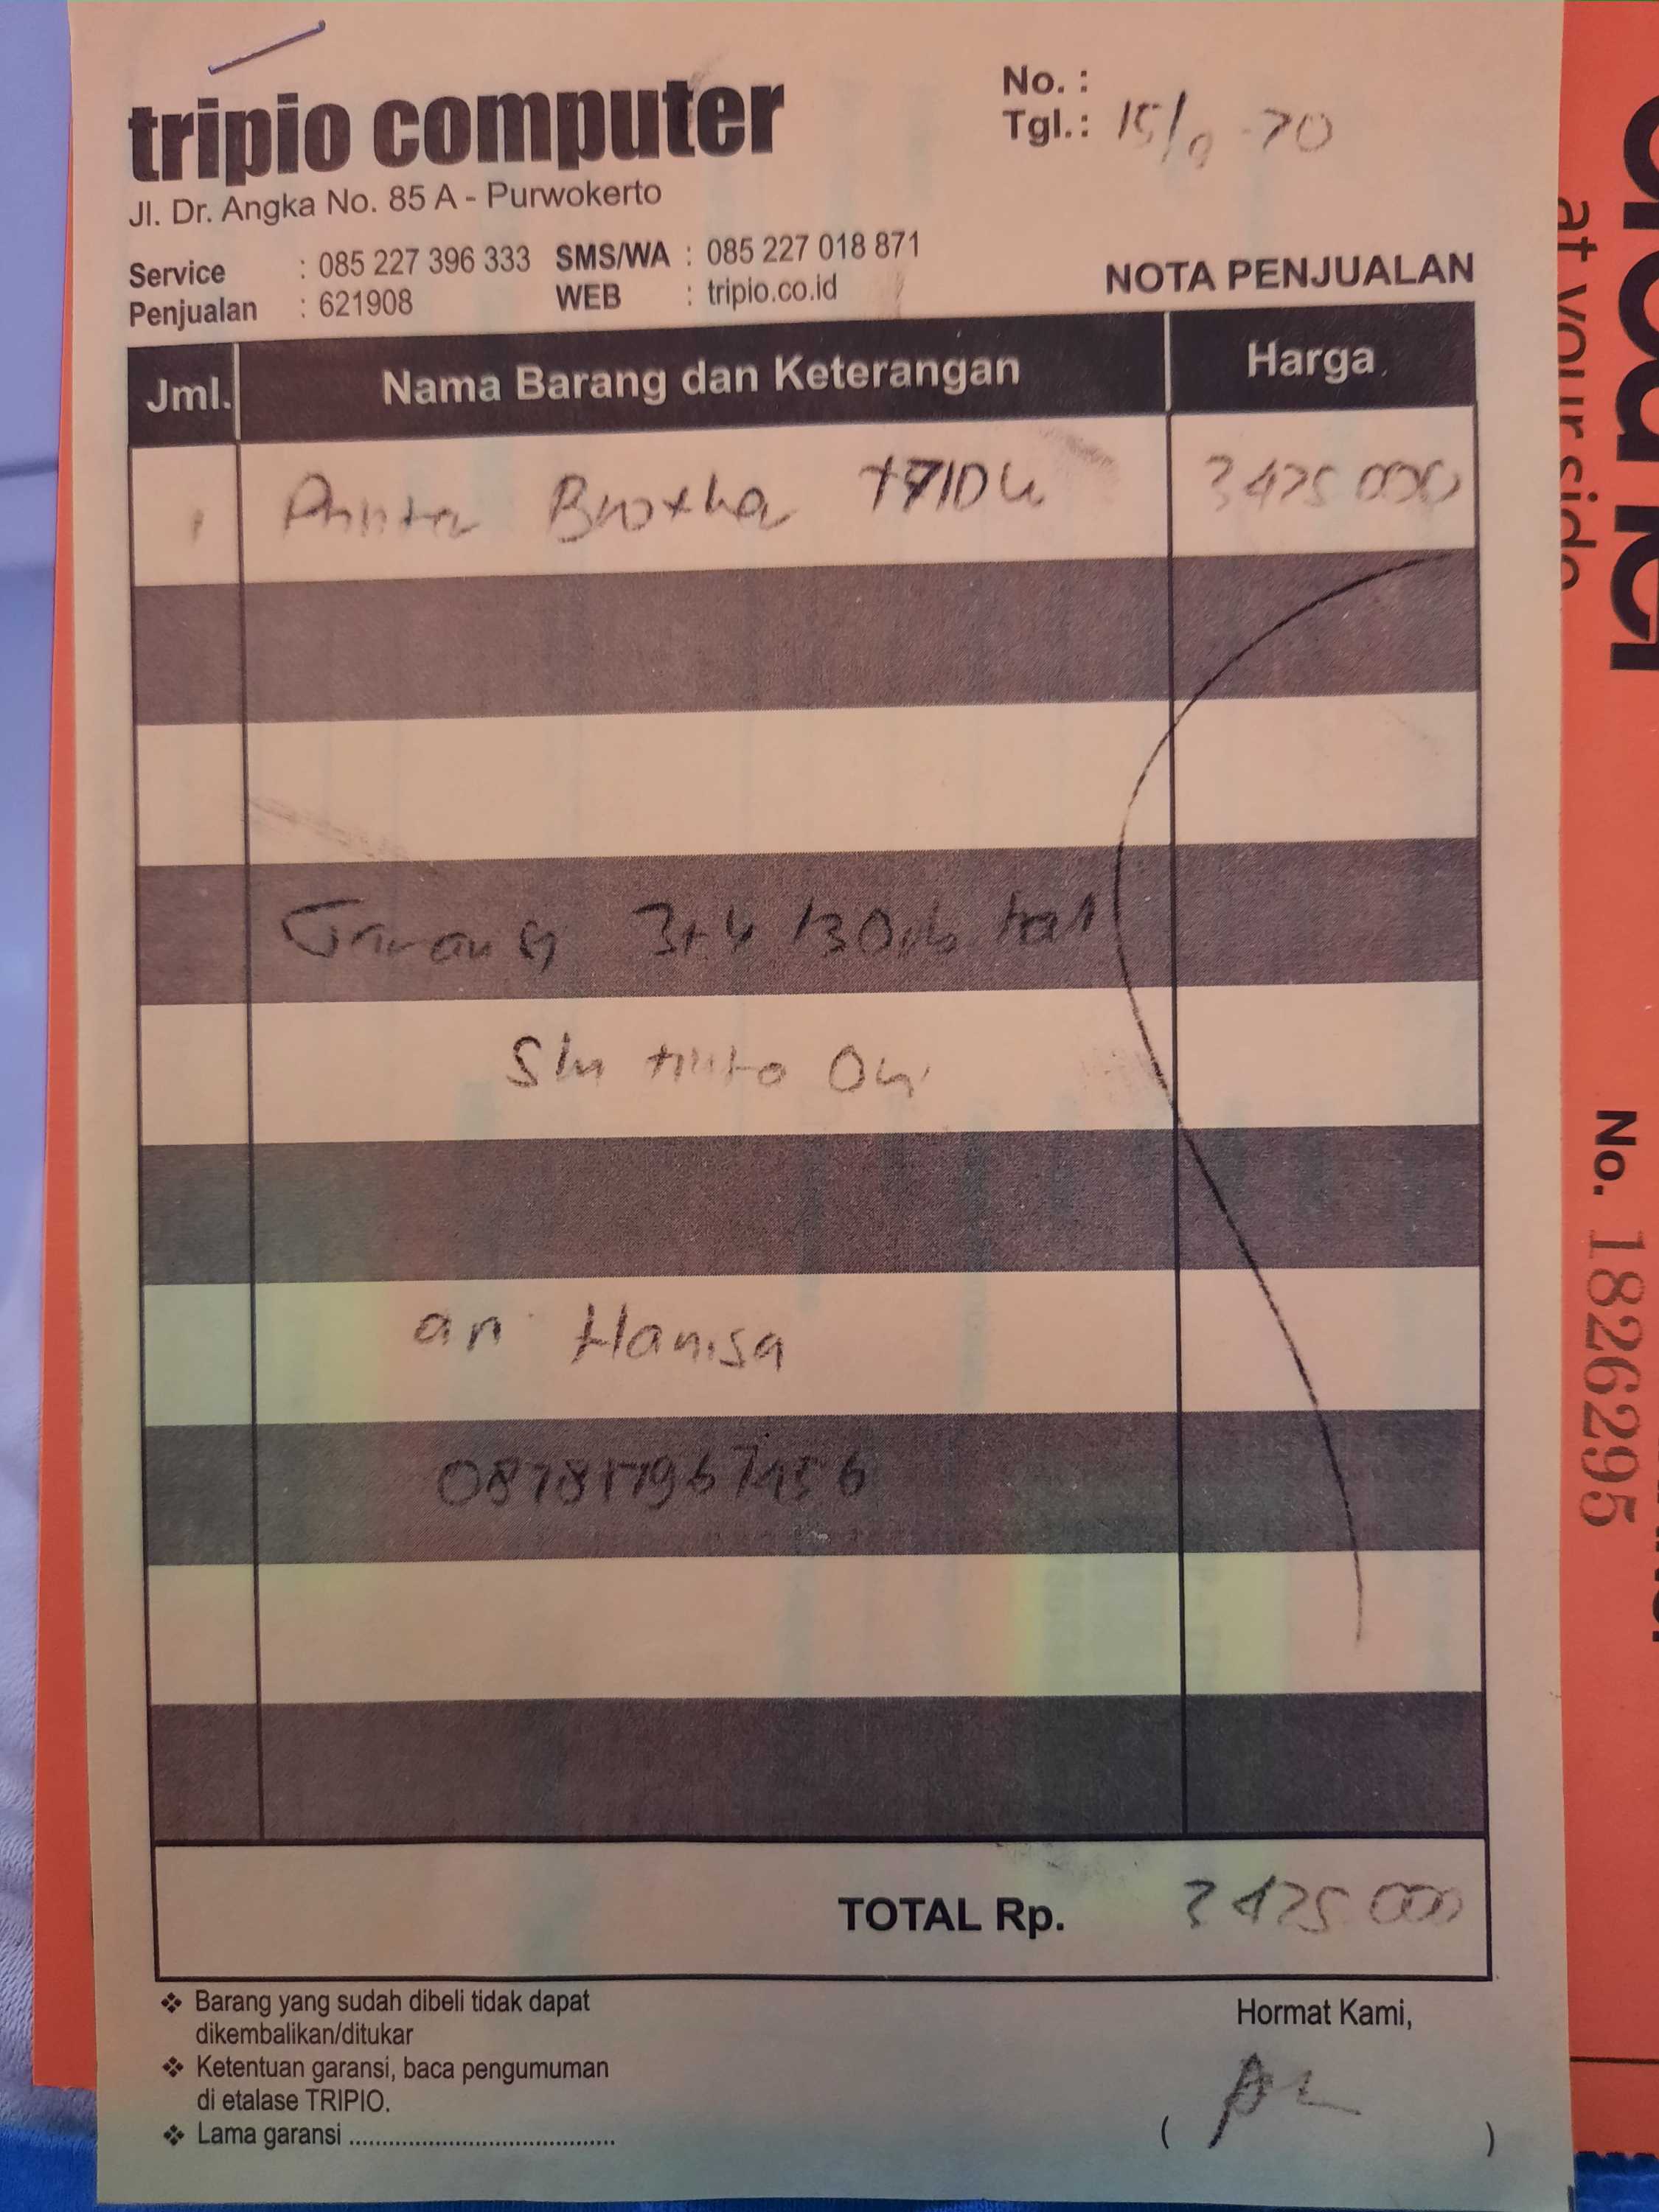 tripio computer
Jl. Dr. Angka No. 85 A - Purwokerto
No. :
Tgl.: 15/9-20
Service : 085 227 396 333 SMS/WA : 085 227 018 871
Penjualan : 621908 WEB : tripio.co.id
NOTA PENJUALAN
Jml. Nama Barang dan Keterangan Harga
1 Printer Brother T710W 3425 000
Garansi 3th / 30rb hal
Slm tinta Ori
an Hanisa
TOTAL Rp. 3425 000
Barang yang sudah dibeli tidak dapat
dikembalikan/ditukar
Ketentuan garansi, baca pengumuman
di etalase TRIPIO.
Lama garansi ........................................
Hormat Kami,
( )
at your side
No. 1826295